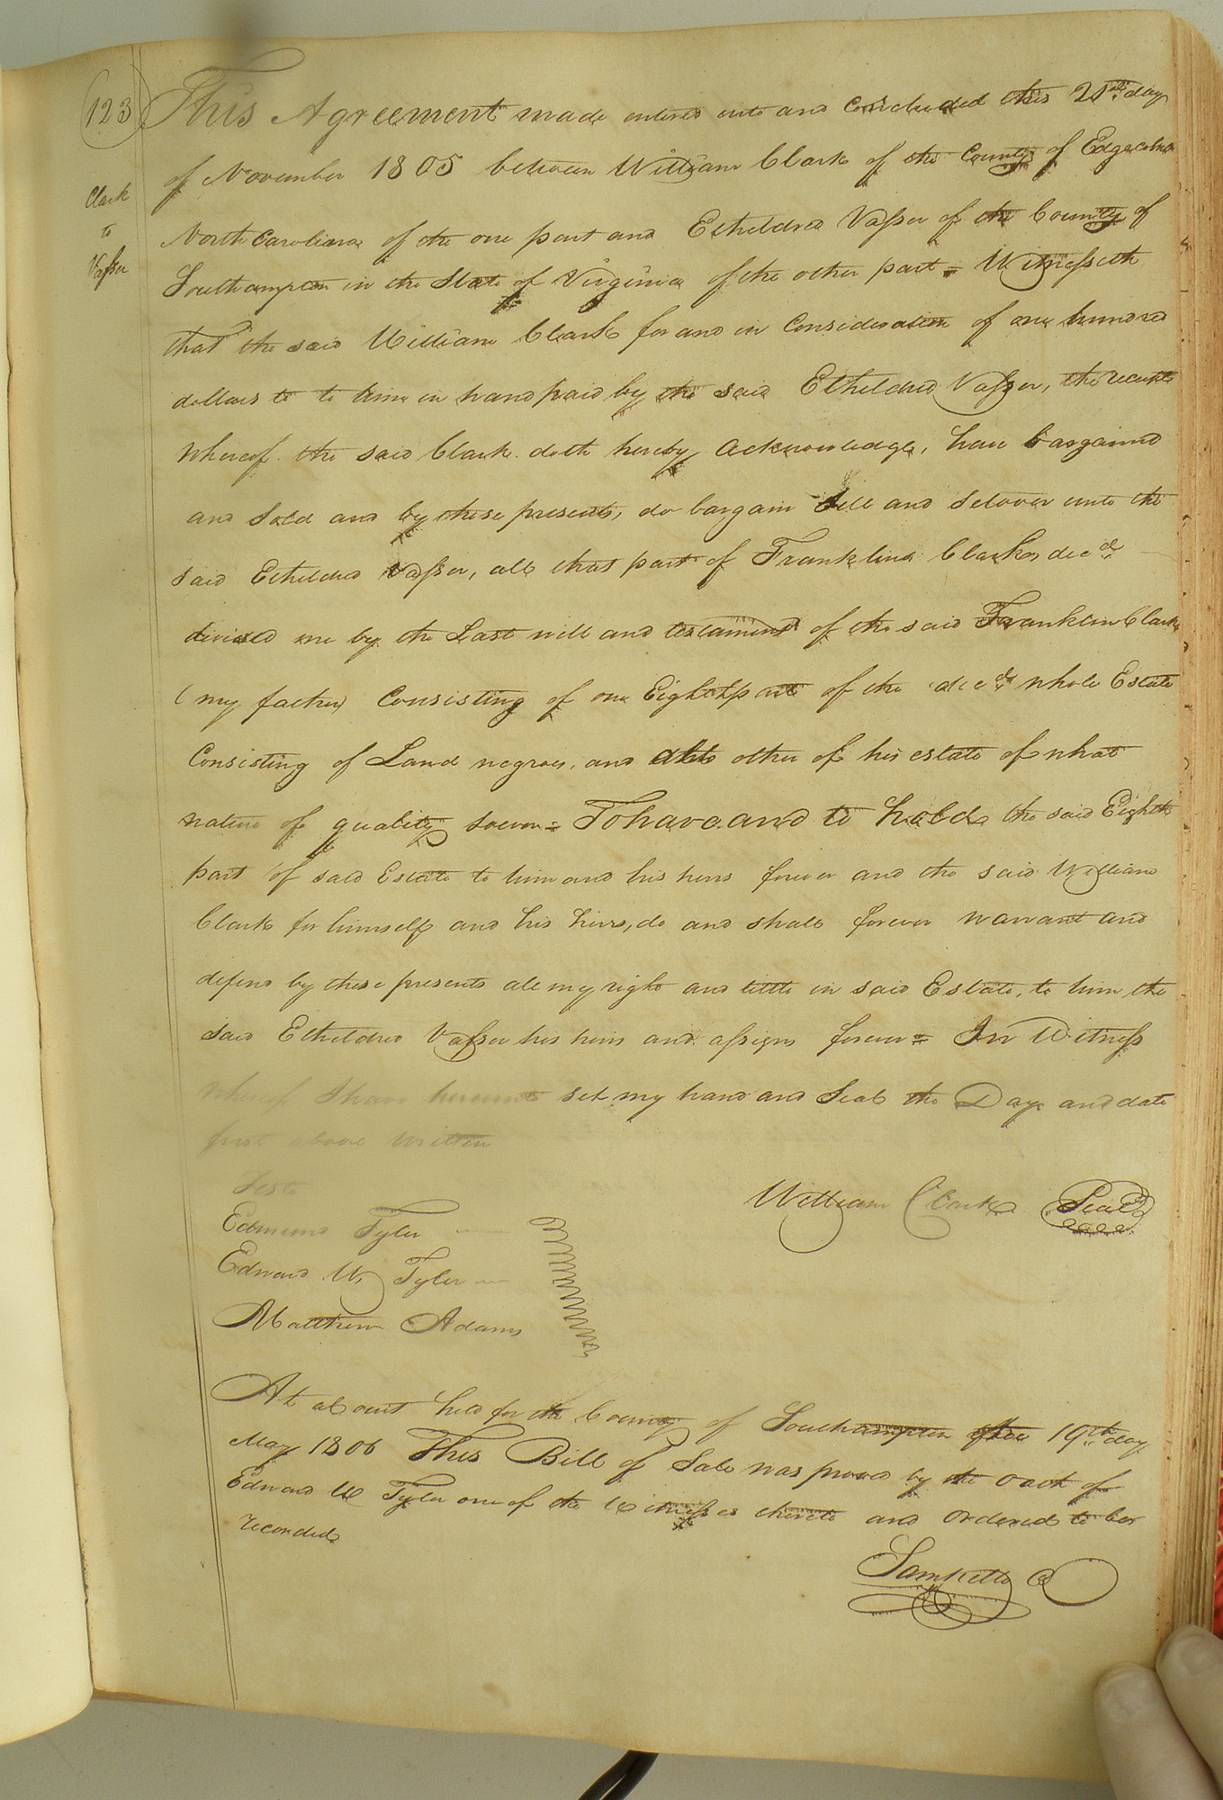 123
This Agreement made entered into and Concluded this 21st day
Clark
to
Vasser
of November 1805 between William Clark of the County of Edgecombe
North Carolina of the one part and Etheldred Vasser of the County of
Southampton in the State of Virginia of the other part = Witnesseth
that the said William Clark for and in Consideration of one hundred
dollars to to him in hand paid by the said Etheldred Vasser, the receipt
whereof the said Clark doth hereby acknowledge, have bargained
and Sold and by these presents, do bargain Sell and Selover unto the
said Etheldred Vasser, all that part of Franklin Clarks decd
devised me by the Last will and testament of the said Franklin Clark
(my father) Consisting of one Eighth part of the decd whole Estate
Consisting of Land negroes, and all other of his estate of what
nature of quality soever = To have and to hold the said Eighth
part of said Estate to him and his heirs forever and the said William
Clark for himself and his heirs, do and shall forever warrant and
defend by these presents all my right and tittle in said Estate, to him the
said Etheldred Vasser his heirs and assigns forever = In Witness
whereof I have hereunto set my hand and Seal the Day and date
first above written
Teste
William Clark Seal
Edmund Tyler
Edward W. Tyler
Matthew Adams
At a Court held for the County of Southampton the 19th day
May 1806 This Bill of Sale was proved by the oath of
Edward W Tyler one of the Witnesses thereto and ordered to be
recorded
Saml Kello C